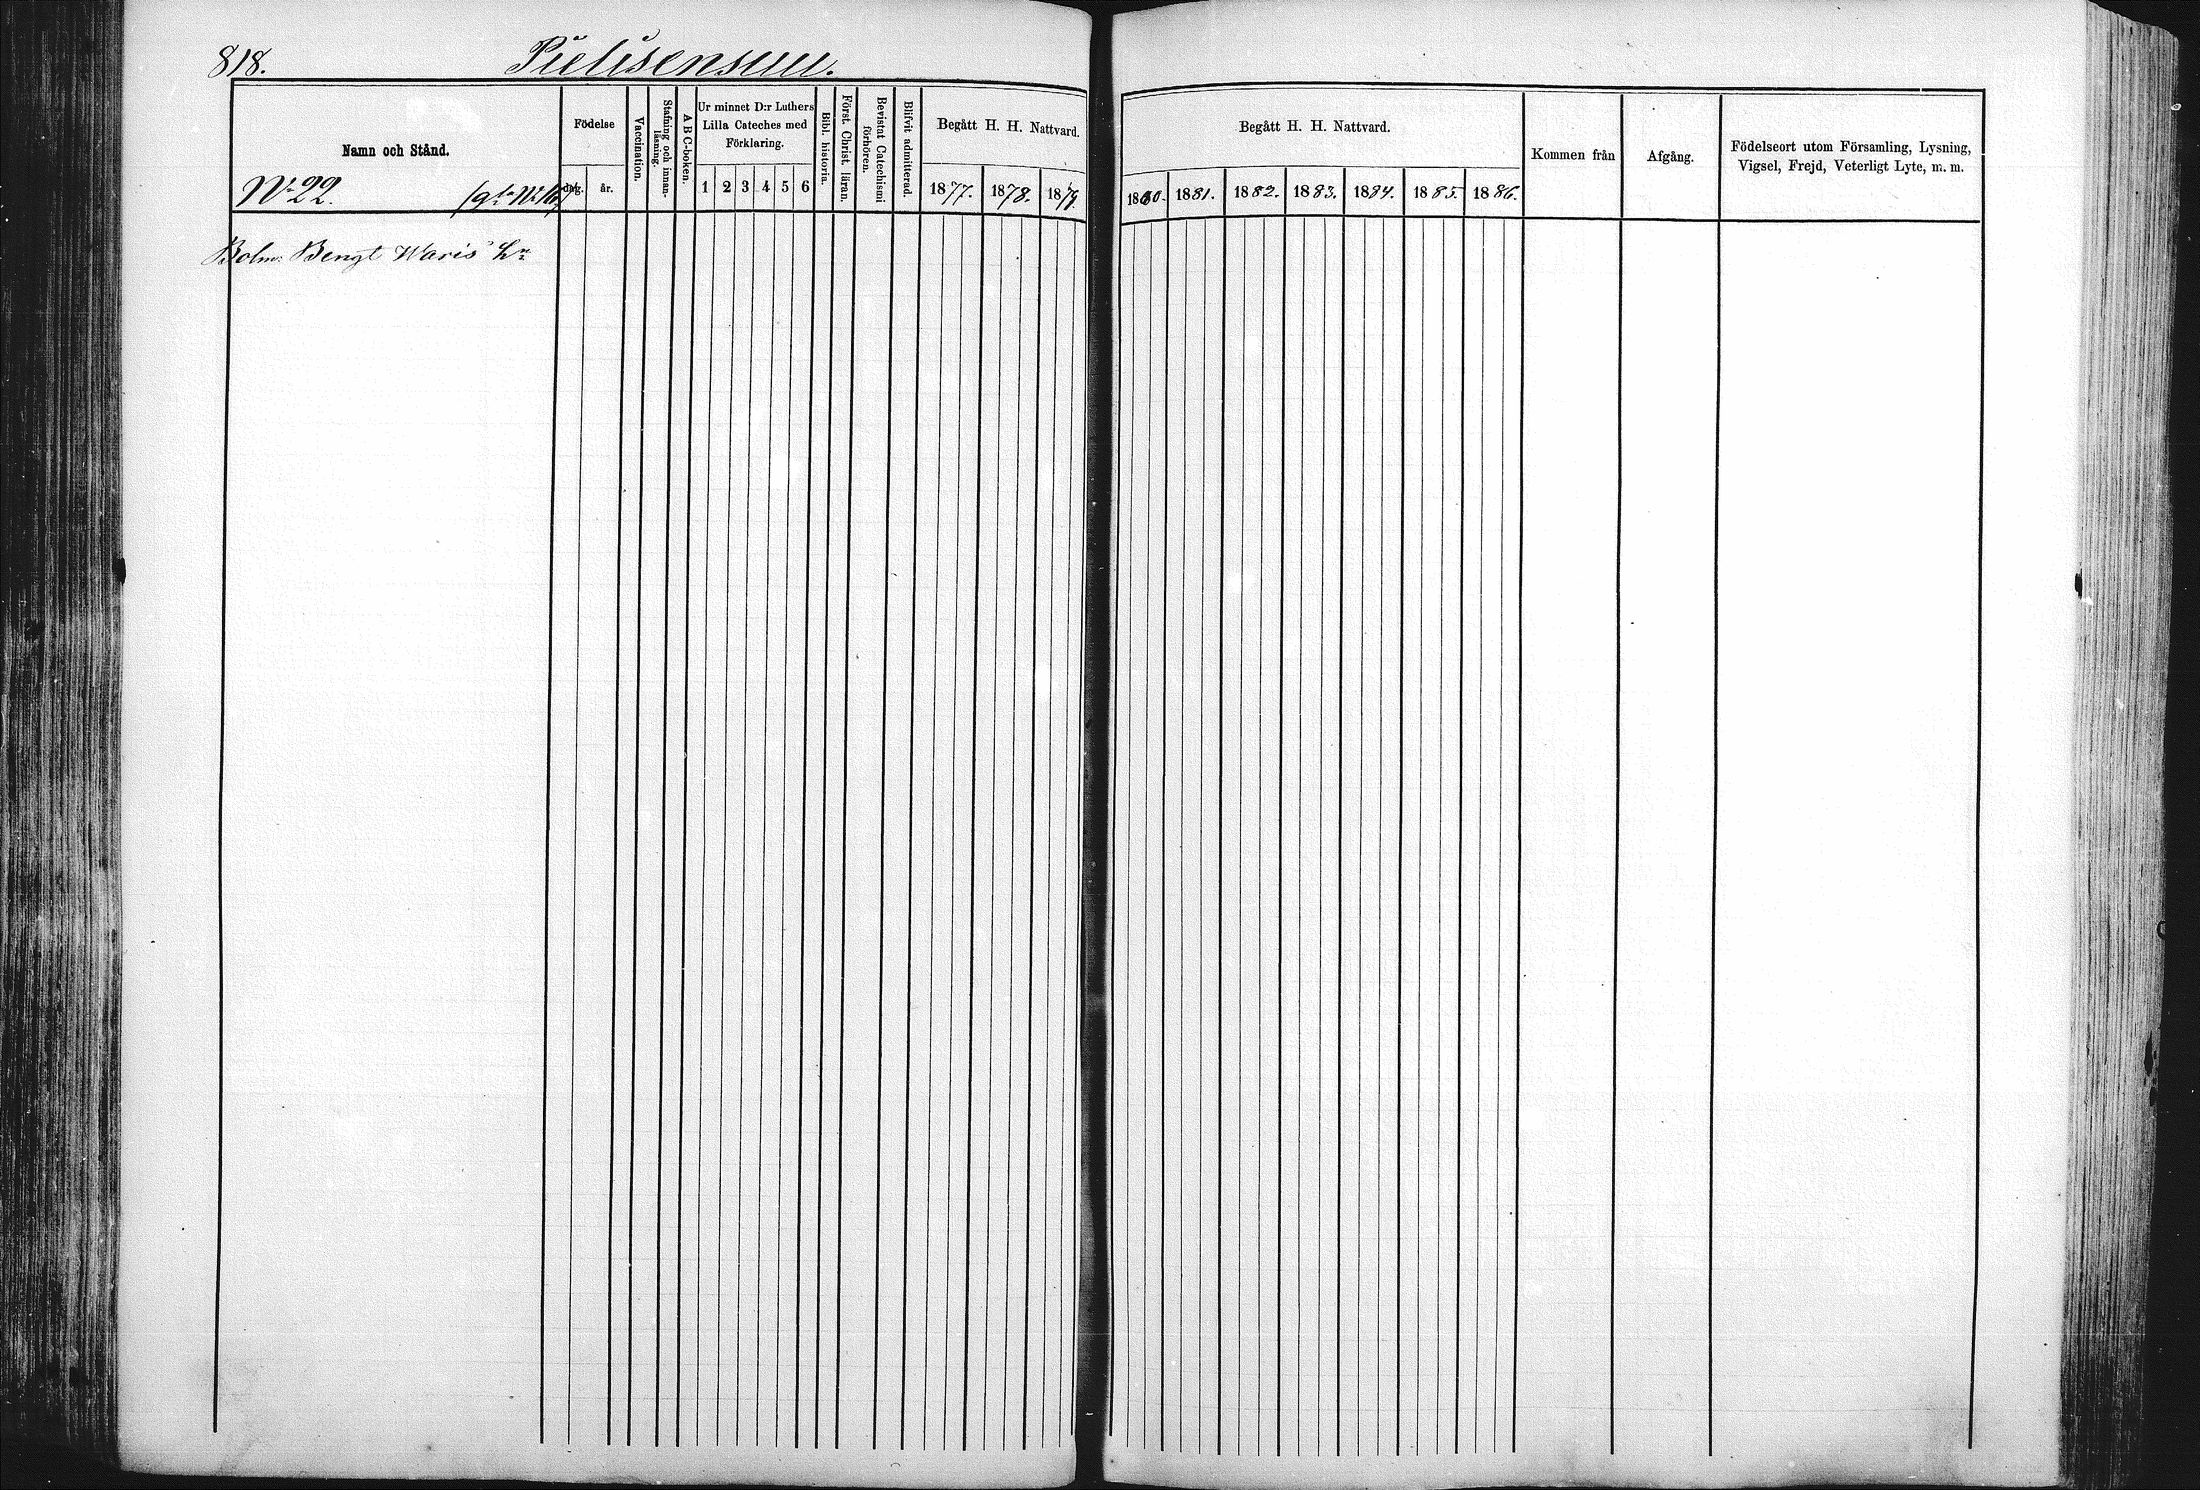 818. Pielisensuu.
Namn och Stånd.
N:o 22.
Födelse
dag. år.
Vaccination.
Stafning och innanläsning.
A B C-boken.
Ur minnet D:r Luthers
Lilla Cateches med
Förklaring.
1 2 3 4 5 6
Bibl. historia.
Först. Christ. läran.
Bevistat Catechismi förhören.
Blifvit admitterad.
Begått H. H. Nattvard.
1877. 1878. 1879.
Begått H. H. Nattvard.
1880. 1881. 1882. 1883. 1884. 1885. 1886.
Kommen från
Afgång.
Födelseort utom Församling, Lysning,
Vigsel, Frejd, Veterligt Lyte, m. m.
Bolm. Bengt Waris